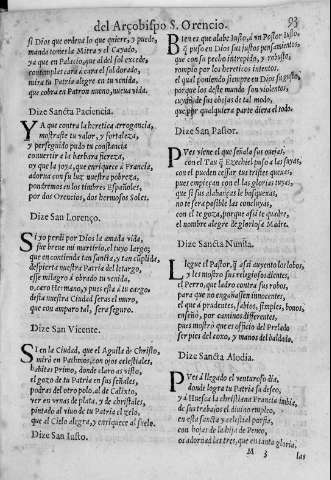 del Arçobispo S. Orencio. 93
si Dios que ordena lo que quiere, y puede,
manda tomeis la Mitra y el Cayado,
ya que en Palacio, que al del sol excede,
contemplays cara à cara el sol dorado,
mira tu Patria alegre en tu venida,
que cobra en Patron nueuo, nueua vida.
Dize Sancta Paciencia.
YA que contra la heretica arrogancia,
mostraste tu valor, y fortaleza,
y perseguido pudo tu constancia
conuertir a la barbara fiereza,
oy que la joya, que enriquece à Francia,
adorna con su luz nuestra pobreza,
pondremos en los timbres Españoles,
por dos Orencios, dos hermosos Soles.
Dize San Lorenço.
SI yo perdi por Dios la amada vida,
fue breue mi martirio, el tuyo largo;
que en contienda tan sancta, y tan cũplida,
despierta nuestra Patria del letargo,
esse milagro à obrado tu venida,
o, caro Hermano, y pues esta à tu cargo,
desta nuestra Ciudad seras el muro,
que con amparo tal, sera seguro.
Dize San Vicente.
SI en la Ciudad, que el Aguila de Christo,
mirò en Pathmos, con ojos celestiales,
habitas Primo, donde claro as visto,
el gozo de tu Patria en sus señales,
podras del otro polo, al de Calixto,
ver en vrnas de plata, y de christales,
pintado al viuo de tu Patria el zelo,
que al Cielo alegra, y enriquece al suelo.
Dize San Iusto.
BIen es que alabe Iusto, à vn Pastor Iusto
q̃ puso en Dios sus justos pensamientos,
que con su pecho intrepido, y robusto,
rompio por los hereticos intentos.
el qual poniendo siempre en Dios su gusto,
porque los deste mundo son violentos,
cuydò de sus obejas de tal modo,
que por qualquiera parte diera el todo.
Dize San Pastor.
PVes viene el que señala sus ouejas,
con el Tau q̃ Ezechiel puso a las suyas,
con el pueden cessar tus tristes quexas,
pues empieçan con el las glorias tuyas,
que si sus alabanças le bosquexas,
no te sera possible las concluyas,
con el te goza, porque assi te quadre,
el nombre alegre de gloriosa Madre.
Dize Sancta Nunila.
LLegue el Pastor, q̃ assi auyentò los lobos,
y les mostrò sus religiosos dientes,
el Perro, que ladrò contra sus robos,
para que no engañassen innocentes,
el que a prudentes, sabios, simples, bonos,
enseñò, por caminos differentes,
pues mostrò que es officio del Prelado
ser pies del coxo, y manos del baldado.
Dize Sancta Alodia.
PVes à llegado el venturoso dia,
donde logra tu Patria su desseo,
y à Huesca la christiana Francia imbia,
de sus trabajos el diuino empleo,
en esta sancta y celestial porfia,
con hojas de la hija de Peneo,
os adornad las tres, que en tanta gloria.
M 3 las